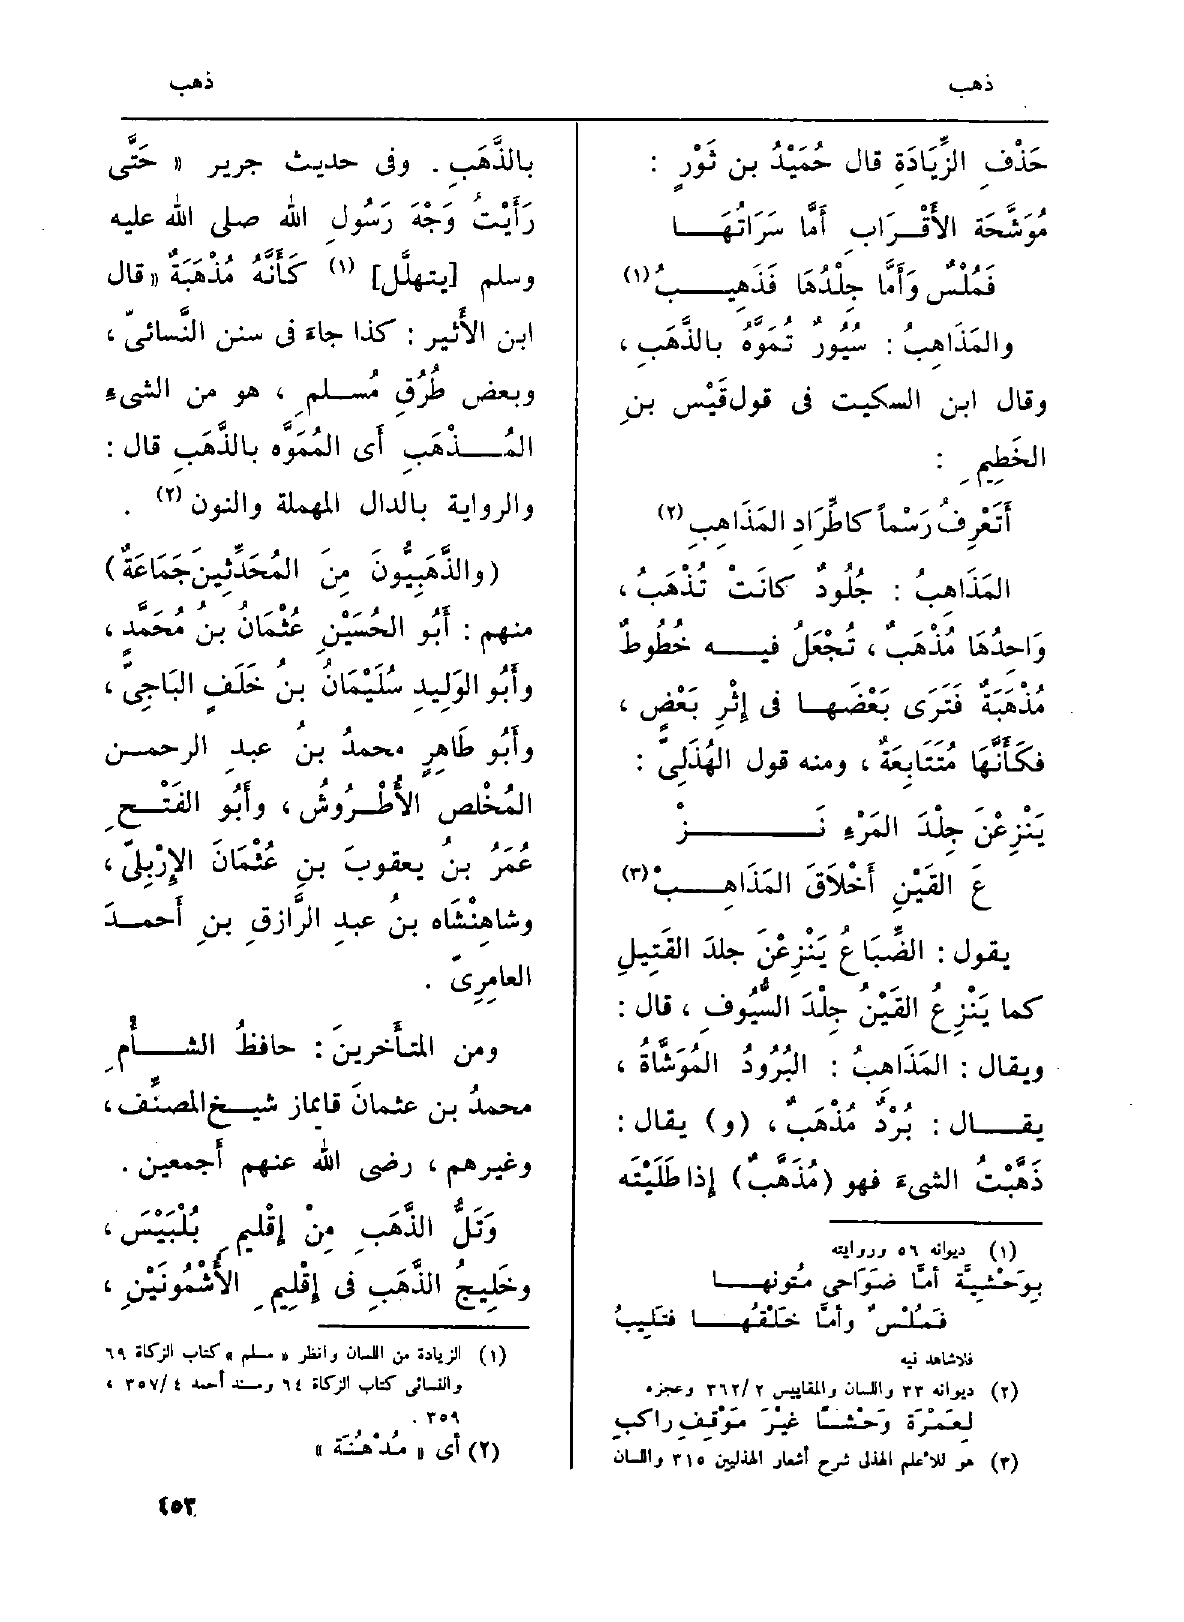 ذهب
ذهب
حَذْفِ الزِّيَادَةِ قال حُمَيْدُ بن ثَوْرٍ :
مُوَشَّحَة الأَقْـرَابِ أَمَّا سَرَاتُهَـا
فَمُلْسٌ وَأَمَّا جِلْدُهَا فَذَهِيـبُ (١)
والمَذَاهِبُ : سُيُورٌ تُمَوَّهُ بالذَّهَبِ ،
وقال ابن السكيت فى قول قَيْسِ بنِ
الخَطِيمِ :
أَتَعْرِفُ رَسْماً كاطِّرَادِ المَذَاهِبِ (٢)
المَذَاهِبُ : جُلُودٌ كانَتْ تُذْهَبُ ،
وَاحِدُهَا مُذْهَبٌ ، تُجْعَلُ فيـه خُطُوطٌ
مُذْهَبَةٌ فَتَرَى بَعْضَهـا فى إِثْرِ بَعْضٍ ،
فكَأَنَّهَا مُتَتَابِعَةٌ ، ومنه قول الهُذَلِىِّ :
يَنْزِعْنَ جِلْدَ المَرْءِ نَـزْ
عَ القَيْنِ أَخْلَاقَ المَذَاهِـبْ (٣)
يقول : الضِّبَاعُ يَنْزِعْنَ جلدَ القَتِيلِ
كما يَنْزِعُ القَيْنُ جِلْدَ السُّيُوفِ ، قال :
ويقال : المَذَاهِبُ : البُرُودُ المُوَشَّاةُ ،
يقـال : بُرْدٌ مُذْهَبٌ ، (و) يقال :
ذَهَّبْتُ الشىءَ فهو (مُذَهَّبٌ) إذا طَلَيْتَه
(١) ديوانه ٥٦ وروايته
بِوَحْشِيَّة أمَّا ضَوَاحِى مُتونهـا
فَمُلْسٌ وأمَّا خَلْقُهـا فتَلِيبُ
فلا شاهد فيه
(٢) ديوانه ٣٣ واللسان والمقاييس ٣٦٢/٢ وعجزه
لِعَمْرَةَ وَحْشـًا غيْرَ مَوْقِفِ راكبِ
(٣) هو للأعلم الهذلى شرح أشعار الهذليين ٣١٥ واللسان
بالذَّهَبِ . وفى حديث جرير « حَتَّى
رَأَيْتُ وَجْهَ رَسُولِ الله صلى الله عليه
وسلم [يتهلَّل] (١) كَأَنَّهُ مُذْهَبَةٌ » قال
ابن الأَثير : كذا جاءَ فى سنن النَّسائىّ ،
وبعض طُرُقِ مُسلـمٍ ، هو من الشىءِ
المُـذْهَبِ أَى المُمَوَّه بالذَّهَبِ قال :
والرواية بالدال المهملة والنون (٢) .
(والذَّهَبِيُّونَ مِنَ المُحَدِّثِينَ جَمَاعَةٌ)
منهم : أَبُو الحُسَيْنِ عُثْمَانُ بنُ مُحَمَّدٍ ،
وأَبُو الوَلِيدِ سُلَيْمَانُ بنُ خَلَفٍ البَاجِىُّ ،
وأَبُو طَاهِرٍ محمدُ بنُ عبدِ الرحمـن
المُخْلص الأُطْـرُوشُ ، وأَبُو الفَتْـحِ
عُمَرُ بنُ يعقوبَ بنِ عُثْمَانَ الإِرْبِلىّ ،
وشاهِنْشَاه بنُ عبدِ الرَّازقِ بنِ أَحمـدَ
العامِرِىّ .
ومن المتأَخرينَ : حافظُ الشـأْمِ
محمدُ بن عثمانَ قايماز شيـخ المصنِّف ،
وغيرهم ، رضى الله عنهم أَجمعين .
وَتَلُّ الذَّهَبِ مِنْ إِقْليمِ بُلْبَيْسَ ،
وخَلِيجُ الذَّهَبِ فى إِقْلِيمِ الأُشْمُونَيْنِ ،
(١) الزيادة من اللسان وانظر « مسلم » كتاب الزكاة ٦٩
والنسائى كتاب الزكاة ٦٤ ومسند أحمد ٤ /٣٥٧ ،
٣٥٩ .
(٢) أى « مُدْهُنَة »
٤٥٣